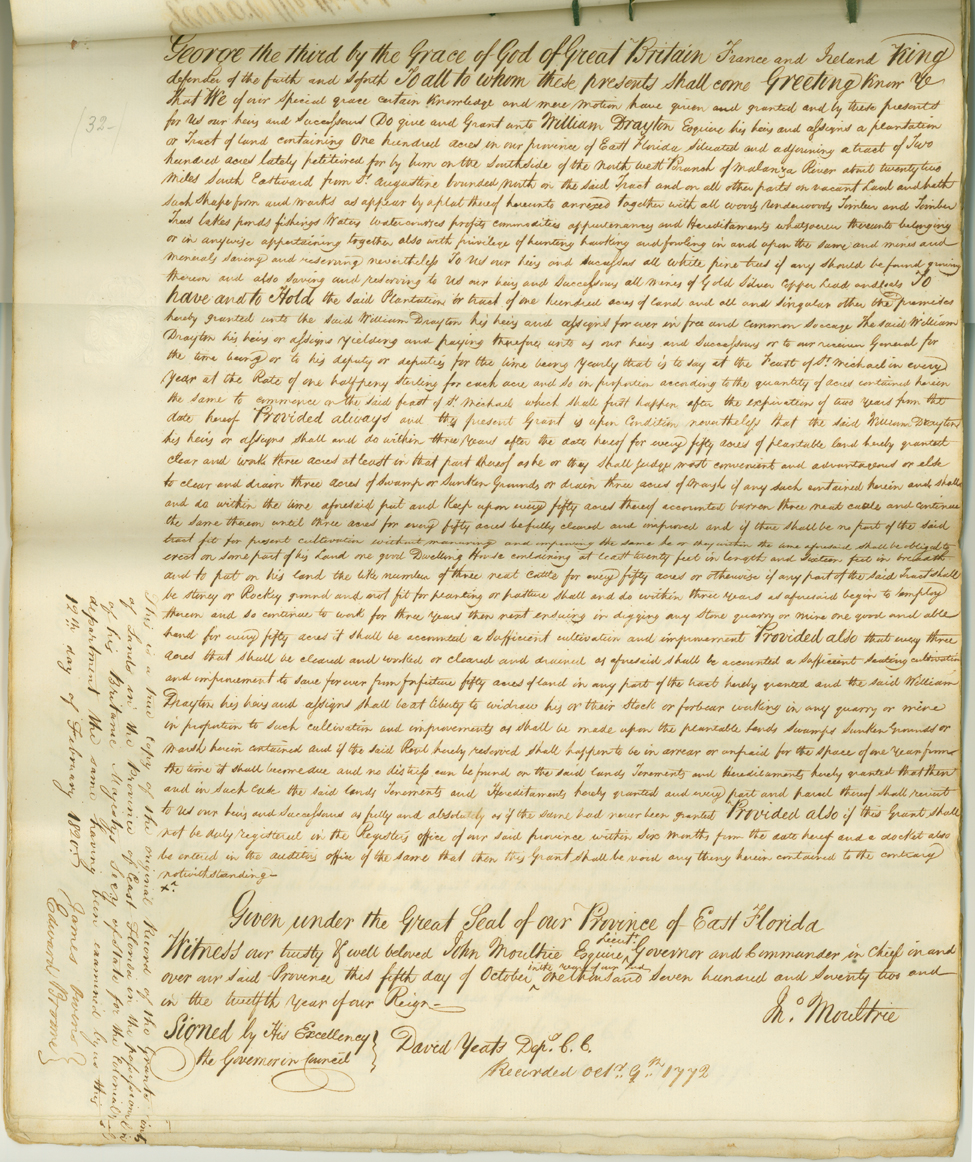 32-
George the third by the Grace of God of Great Britain France and Ireland King
defender of the faith and soforth To all to whom these presents shall come Greeting Know Ye
that We of our special grace certain knowledge and mere motion have given and granted and by these presents
for us our heirs and Successours Do give and Grant unto William Drayton Esquire his heirs and assigns a plantation
or Tract of land containing One hundred acres in our province of East Florida situated and adjoining a tract of Two
hundred acres lately petitioned for by him on the Southside of the North west Branch of Matanza River about twenty two
miles South Eastward from St. Augustine bounded North on the said Tract and on all other parts on vacant Land and hath
such Shape form and marks as appear by a plat thereof hereunto annexed Together with all woods Underwoods Timber and Timber
Trees lakes ponds fishings Waters Watercourses profits commodities appurtenances and Hereditaments whatsoever thereunto belonging
or in anywise appertaining together also with privilege of hunting hawking and fowling in and upon the same and mines and
minerals saving and reserving nevertheless To Us our heirs and successors all white pine trees if any should be found growing
thereon and also saving and reserving to Us our heirs and Successours all mines of Gold Silver Copper Lead and Coals To
have and to Hold the said Plantation or tract of one hundred acres of land and all and singular other the premises
hereby granted unto the said William Drayton his heirs and assigns for ever in free and common Soccage The said William
Drayton his heirs or assigns yielding and paying therefore unto us our heirs and Successours or to our receiver General for
the time being or to his deputy or deputies for the time being Yearly that is to say at the Feast of St. Michael in every
Year at the Rate of one halfpeny Sterling for each acre and so in proportion according to the quantity of acres contained herein
the same to commence on the said feast of St. Michael which shall first happen after the expiration of two years from the
date hereof Provided always and this present Grant is upon Condition nevertheless that the said William Drayton
his heirs or assigns shall and do within three years after the date hereof for every fifty acres of plantable land hereby granted
clear and work three acres at least in that part thereof as he or they shall judge most convenient and advantageous or else
to clear and drain three acres of Swamp or Sunken Grounds or drain three acres of Marsh if any such contained herein and shall
and do within the time aforesaid put and Keep upon every fifty acres thereof accounted barren three neat cattle and continue
the same thereon until three acres for every fifty acres be fully cleared and improved and if there shall be no part of the said
tract fit for present cultivation without manuring and improving the same he or they within the time aforesaid shall be obliged to
erect on some part of his Land one good Dwelling House containing at least twenty feet in length and Sixteen feet in breadth
and to put on his land the like number of three neat cattle for every fifty acres or otherwise if any part of the said Tract shall
be stoney or Rocky ground and not fit for planting or pasture shall and do within three years as aforesaid begin to employ
thereon and so continue to work for three years then next ensuing in digging any stone quarry or mine one good and able
hand for every fifty acres it shall be accounted a sufficient cultivation and improvement Provided also that every three
acres that shall be cleared and worked or cleared and drained as aforesaid shall be accounted a sufficient seating cultivation
and improvement to save for ever from forfeiture fifty acres of land in any part of the tract hereby granted and the said William
Drayton his heirs and assigns shall be at liberty to widraw his or their stock or forbear working in any quarry or mine
in proportion to such cultivation and improvements as shall be made upon the plantable lands Swamps Sunken Grounds or
Marsh herein contained and if the said Rent hereby reserved shall happen to be in arrear or unpaid for the space of one Year from
the time it shall become due and no distress can be found on the said lands Tenements and Hereditaments hereby granted that then
and in such Case the said lands Tenements and Hereditaments hereby granted and every part and parcel thereof shall revert
to Us our heirs and Successours as fully and absolutely as if the same had never been granted Provided also if this Grant shall
not be duly registered in the Registers office of our said province within Six Months from the date hereof and a docket also
be entered in the auditors office of the same that then this Grant shall be void any thing herein contained to the contrary
notwithstanding-
Given under the Great Seal of our Province of East Florida
Witness our trusty & well beloved John Moultrie Esquire Lieut. Governor and Commander in Chief in and
over our said Province this fifth day of October in the year of our Lord one thousand seven hundred and seventy two and
in the twelfth Year of our Reign-
Jno. Moultrie
Signed by His Excellency
the Governor in Council
David Yeats Depy. C. C.
Recorded Octr. 9th. 1772
This is a true Copy of the original Record of the Grants
of Lands in the Province of East Florida in the possession
of his Britanic Majestys Secy. of State for the Colonial
department the same having been examined by us this
12th day of February 1821
James Owens
Edward Brome